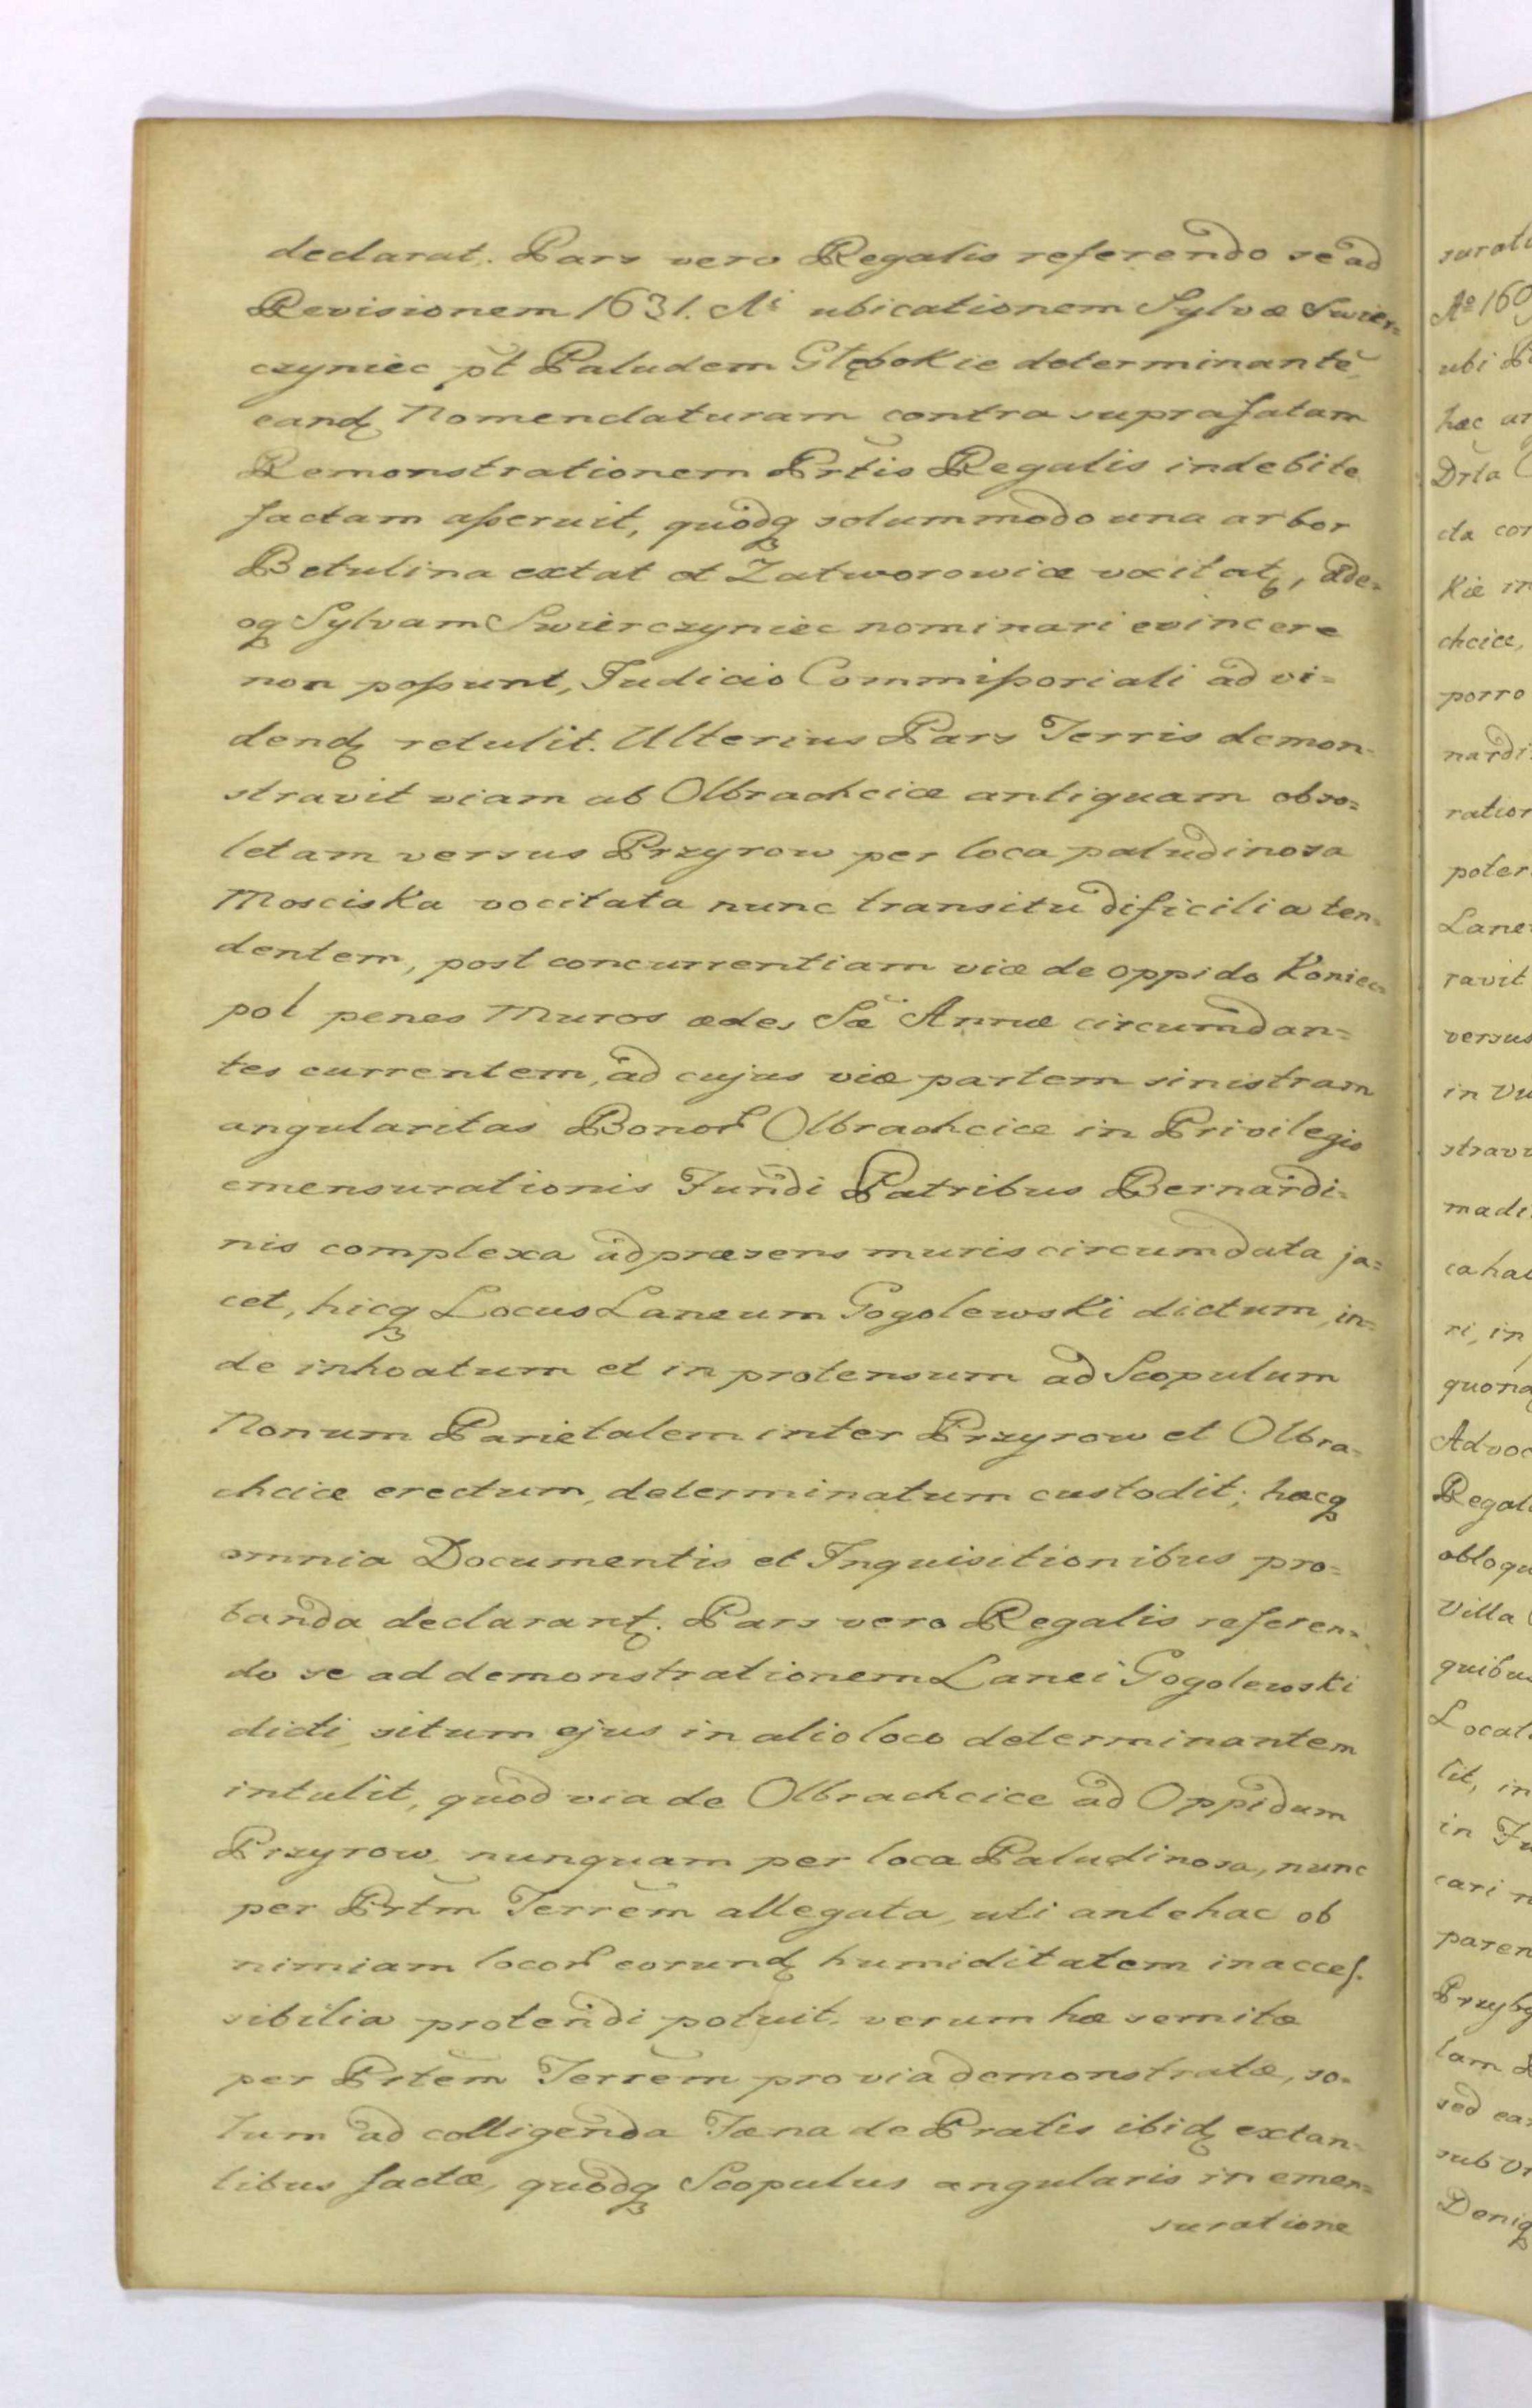 declarat. Pars vero Regalis referendo se ad
Revisionem 1631. Ai ubicationem Sylvæ Swier=
czyniec pt Paludem Głębokie determinante
eandꝫ Nomenclaturam contra suprafatam
Remonstrationem Prtis Regalis indebite
factam aſseruit, quodqꝫ solummodo una arbor
Betulina extat et Zatworowicæ vocitatꝫ, ade=
oqꝫ Sylvam Swierczyniec nominari evincere
non poſsunt, Judicio Commiſsoriali ad vi=
dendꝫ retulit. Ulterius Pars Terris demon=
stravit viam ab Olbrachcice antiquam obso=
letam versus Przyrow per loca paludinosa
Mosciska vocitata nunc transitu dificilia ten=
dentem, post concurrentiam viæ de oppido Koniec=
pol penes Muros ædes Sæ Annæ circumdan=
tes currentem, ad cujus viæ partem sinistram
angularitas Bonor Olbrachcice in Privilegio
emensurationis Fundi Patribus Bernardi=
nis complexa ad præsens muris circumdata ja=
cet, hicqꝫ Locus Laneum Gogolewski dictum, in=
de inhoatum et in protensum ad Scopulum
Nonum Parietalem inter Przyrow et Olbra=
chcice erectum, determinatum custodit; hæcqꝫ
omnia Documentis et Inquisitionibus pro=
banda declarantꝫ. Pars vero Regalis referen=
do se ad demonstrationem Lanei Gogolewski
dicti, situm ejus in alio loco determinantem
intulit, quod via de Olbrachcice ad Oppidum
Przyrow, nunquam per loca Paludinosa, nunc
per Prtm Terrem allegata, uti antehac ob
nimiam locor eorundꝫ humiditatem inacceſ.
sibilia protendi potuit, verum hæ semitæ
per Prtem Terrem pro via demonstratæ, so=
lum ad colligenda Fæna de Pratis ibidꝫ extan=
tibus factæ, quodqꝫ Scopulus angularis in emen=
suratione
surati
Aº 160
ubi
hæc ar
Drta
cta con
Kie in
chcice,
porro
nardi
ration
poter
Lane
ravit
versus
in Vu
strav
made
ca ha
ri, in
quon
Advoc
Regal
obloqu
Villa
quibus
Local
lit, in
in Fu
cari n
paren
Przyby
lam
sed ea
sub
Deniqꝫ